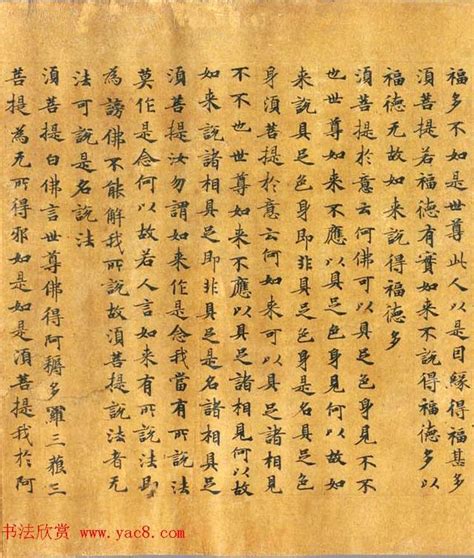 福多不如是世尊此人以是因緣得福甚多
須菩提若福德有實如來不說得福德多以
福德无故如來說得福德多
須菩提於意云何佛可以具足色身見不不
也世尊如來不應以具足色身見何以故如
來說具足色身即非具足色身是名具足色
身須菩提於意云何如來可以具足諸相見
不不也世尊如來不應以具足諸相見何以故
如來說諸相具足即非具足是名諸相具足
須菩提汝勿謂如來作是念我當有所說法
莫作是念何以故若人言如來有所說法即
為謗佛不能解我所說故須菩提說法者无
法可說是名說法
須菩提白佛言世尊佛得阿耨多羅三藐三
菩提為无所得邪如是如是須菩提我於阿
书法欣赏 www.yac8.com